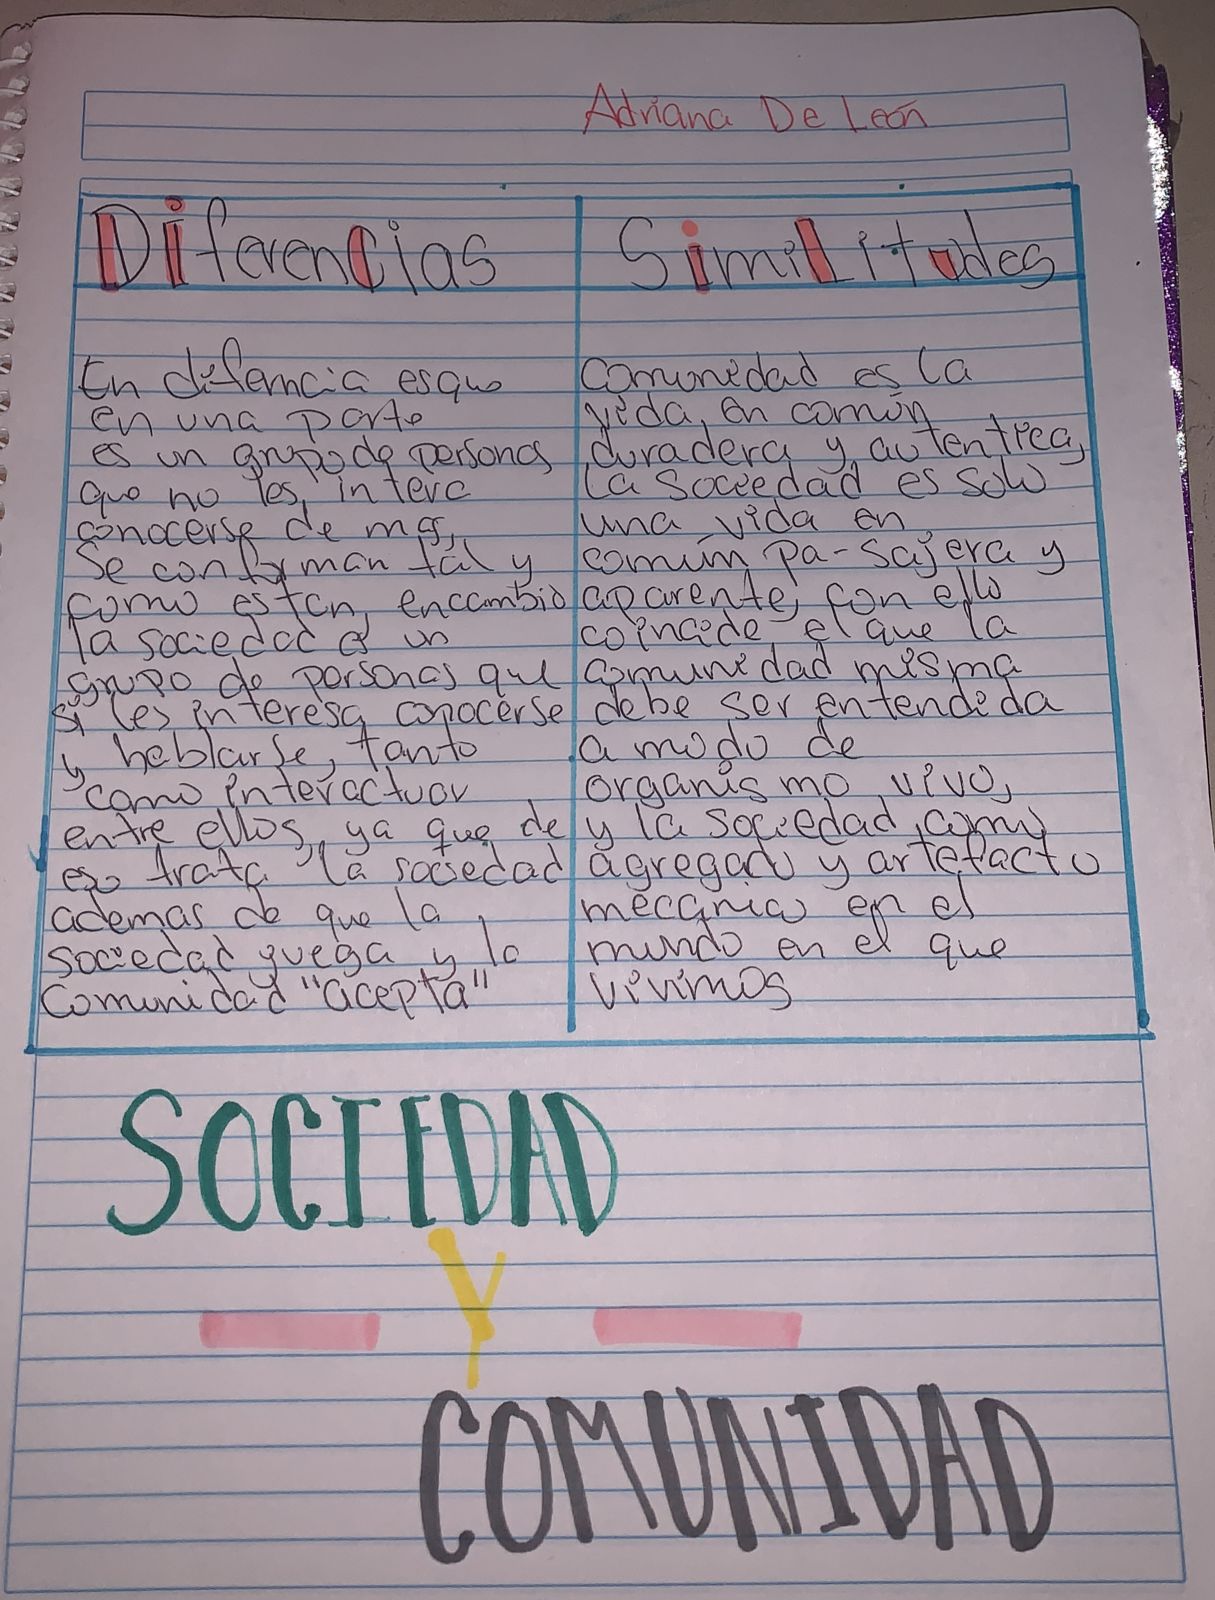 Adriana De León
Diferencias
En difemcia esque
en una parte
es un grupo de personas
que no les interc
conocerse de mas,
Se conforman tal y
como estan, encambio
la sociedad es un
grupo de personas que
si les interesa conocerse
y hablarse, tanto
como interactuar
entre ellos, ya que de
eso trata la sociedad
ademas de que la
sociedad yuega y la
Comunidad "acepta"
SimiLitudes
Comunidad es la
vida en común
duradera y autentica,
la sociedad es solo
una vida en
común pa-sajera y
aparente, con ello
coincide el que la
comunidad misma
debe ser entendida
a modo de
organismo vivo,
y la sociedad, como
agregado y artefacto
mecanico en el
mundo en el que
vivimos
SOCIEDAD
Y
COMUNIDAD